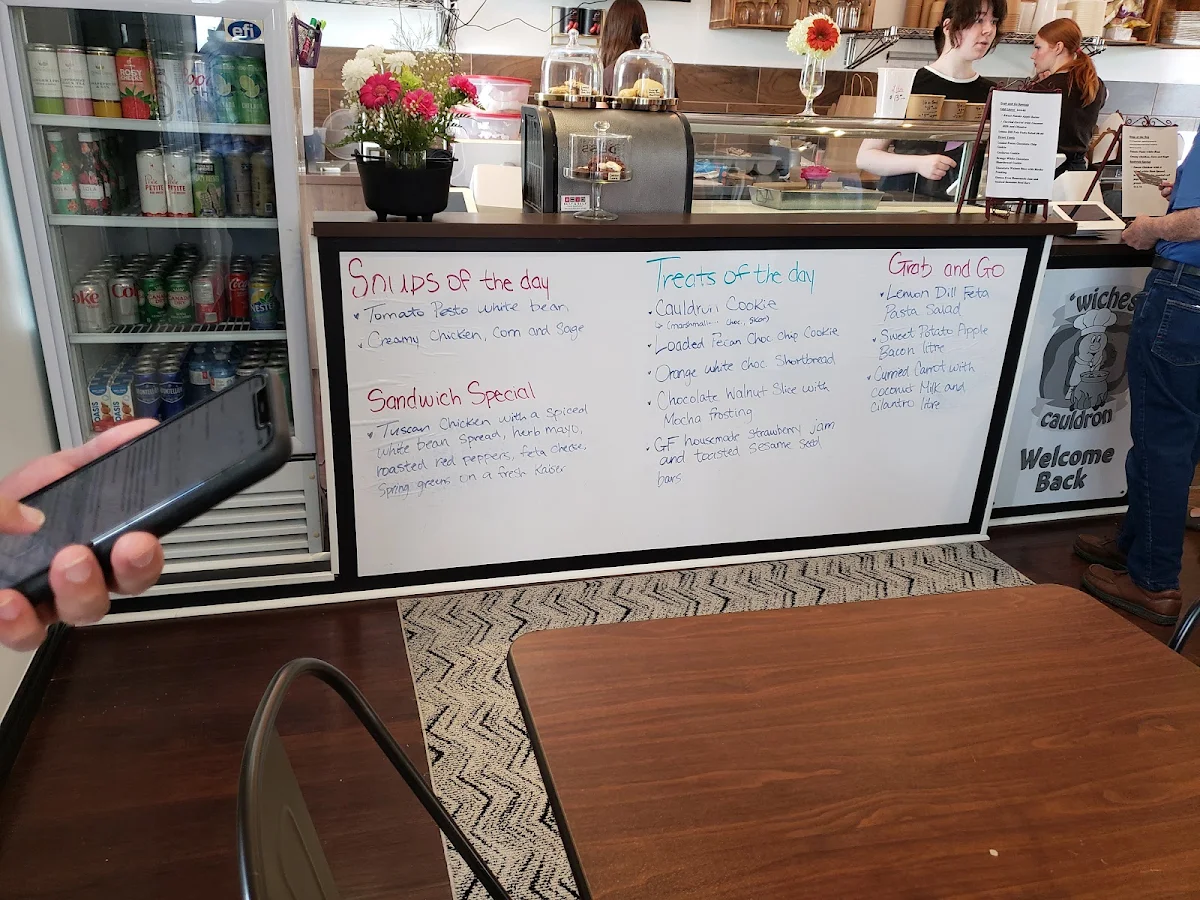 efi
ROSY
PETITE
PETITE
Coke
Coke
CANADA DRY
CANADA DRY
NESTEA
OASIS
OASIS
Soups of the day
• Tomato Pesto white bean
• Creamy Chicken, Corn and Sage
Sandwich Special
• Tuscan Chicken with a spiced
white bean spread, herb mayo,
roasted red peppers, feta cheese,
Spring greens on a fresh Kaiser
Treats of the day
• Cauldron Cookie
• Loaded Pecan Choc Chip Cookie
• Orange white choc Shortbread
• Chocolate Walnut Slice with
Mocha frosting
• GF housemade strawberry jam
and toasted sesame seed
bars
Grab and Go
• Lemon Dill Feta
Pasta Salad
• Sweet Potato Apple
Bacon litre
• Curried Carrot with
coconut Milk and
cilantro litre
'wiches
cauldron
Welcome
Back